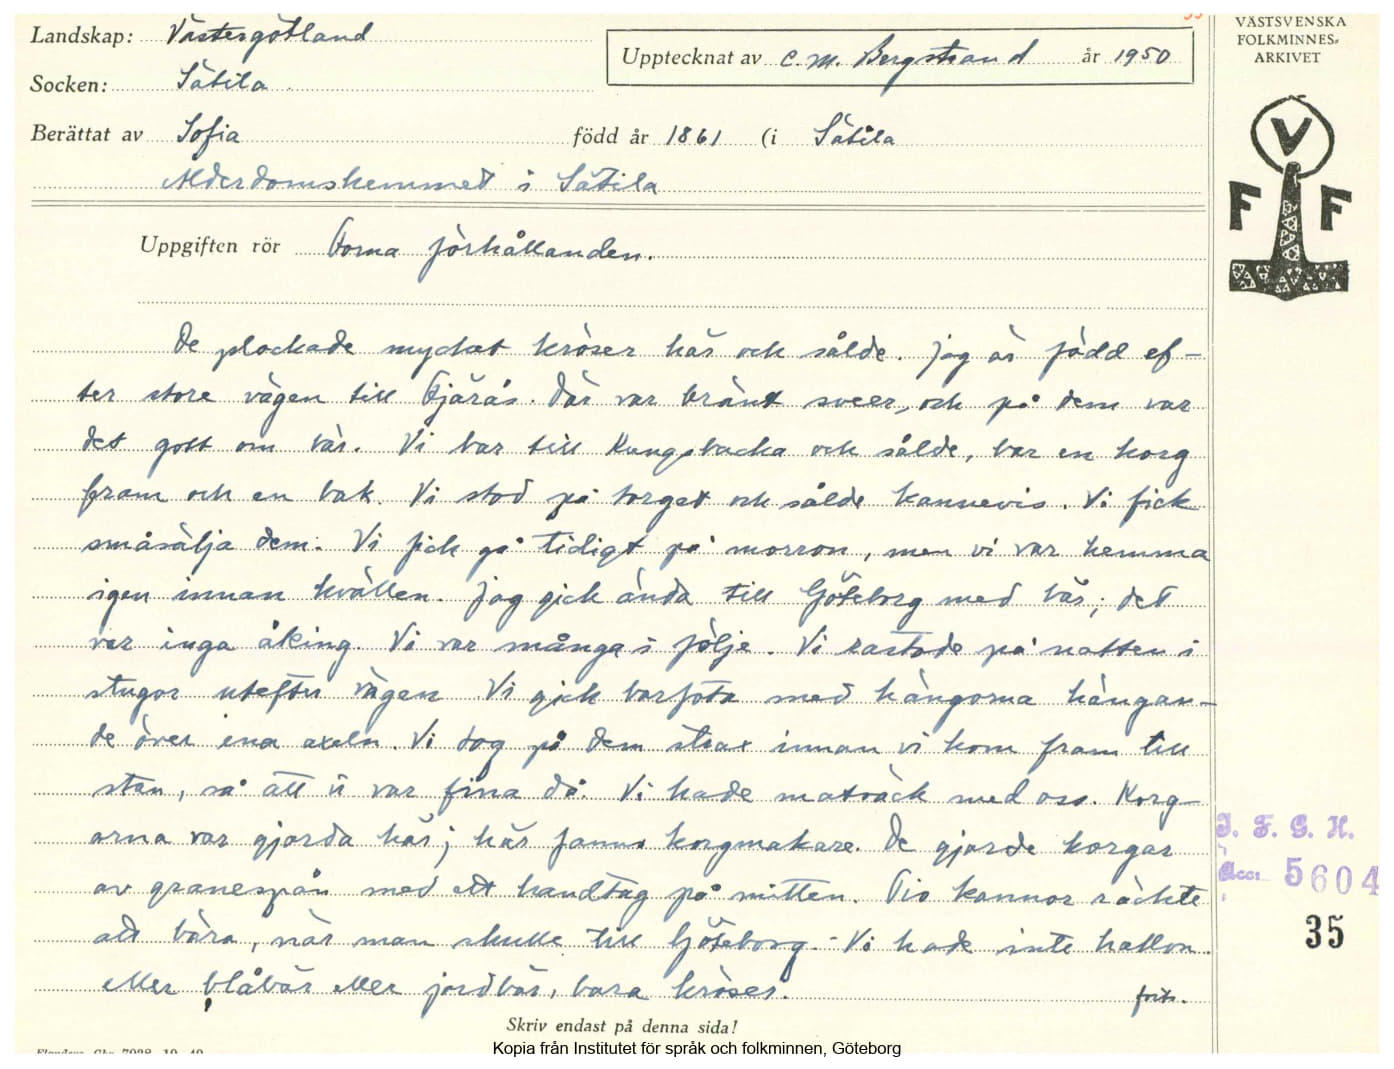 Landskap: Västergötland
Socken: Sätila
Upptecknat av C. M. Bergstrand år 1950
Berättat av Sofia född år 1861 (i Sätila
Ålderdomshemmet i Sätila
VÄSTSVENSKA
FOLKMINNES-
ARKIVET
V
F F
Uppgiften rör Forna förhållanden.
De plockade mycket kröser här och sålde. Jag är född ef-
ter store vägen till Fjärås. Där var bränt sveer, och på dem var
det gott om bär. Vi bar till Kungsbacka och sålde, bar en korg
fram och en bak. Vi stod på torget och sålde kannevis. Vi fick
småsälja dem. Vi fick gå tidigt på morron, men vi var hemma
igen innan kvällen. Jag gick ända till Göteborg med bär, det
var inga åking. Vi var många i följe. Vi rastade på natten i
stugor utefter vägen Vi gick barfota med kängorna hängan-
de över ena axeln. Vi tog på dem strax innan vi kom fram till
stan, så att vi var fina då. Vi hade matsäck med oss. Korg-
arna var gjorda här; här fanns korgmakare. De gjorde korgar
av granespån med ett handtag på mitten. Tio kannor räckte
att bära, när man skulle till Göteborg. - Vi hade inte hallon
eller blåbär eller jordbär, bara kröser.
forts.
I. F. G. H.
Acc. 5604
35
Skriv endast på denna sida!
Kopia från Institutet för språk och folkminnen, Göteborg